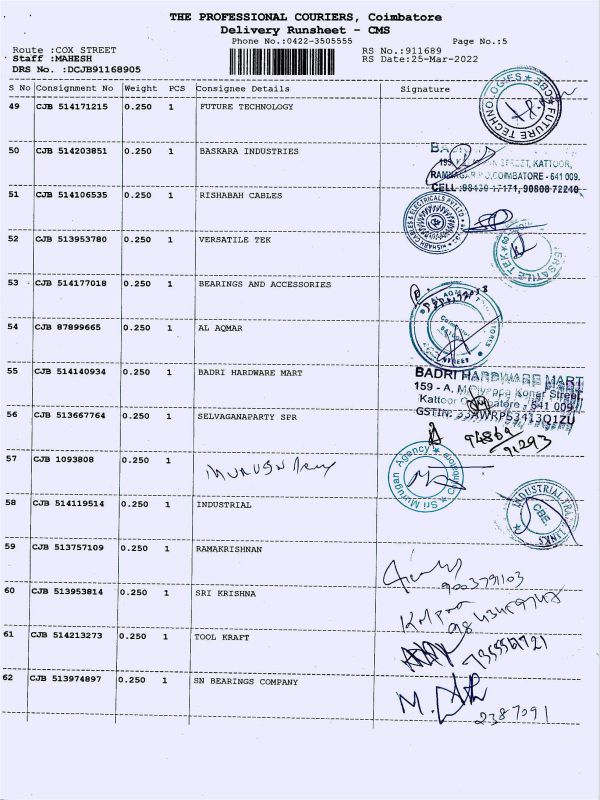 THE PROFESSIONAL COURIERS, Coimbatore
Delivery Runsheet - CMS
Phone No.:0422-3505555
Page No.:5
Route :COX STREET
RS No.:911689
Staff :MAHESH
RS Date:25-Mar-2022
DRS No. :DCJB91168905
S No Consignment No Weight PCS Consignee Details Signature
49 CJB 514171215 0.250 1 FUTURE TECHNOLOGY
FUTURE TECHNOLOGIES CBE
50 CJB 514203851 0.250 1 BASKARA INDUSTRIES
STREET, KATTOOR,
COIMBATORE - 641 009.
CELL :98430 17171, 90808 72240
51 CJB 514106535 0.250 1 RISHABAH CABLES
RISHABH CABLES & ELECTRICALS PVT LTD
52 CJB 513953780 0.250 1 VERSATILE TEK
VERSATILE TEK
53 CJB 514177018 0.250 1 BEARINGS AND ACCESSORIES
54 CJB 87899665 0.250 1 AL AQMAR
55 CJB 514140934 0.250 1 BADRI HARDWARE MART
BADRI HARDWARE MART
159 - A, Street,
Kattoor Coimbatore - 641 009
GSTIN:
56 CJB 513667764 0.250 1 SELVAGANAPARTY SPR
94869
91293
57 CJB 1093808 0.250 1
Sri Murugan Agency Coimbatore
58 CJB 514119514 0.250 1 INDUSTRIAL
INDUSTRIAL LINKS CBE
59 CJB 513757109 0.250 1 RAMAKRISHNAN
9003791103
60 CJB 513953814 0.250 1 SRI KRISHNA
61 CJB 514213273 0.250 1 TOOL KRAFT
62 CJB 513974897 0.250 1 SN BEARINGS COMPANY
2387091